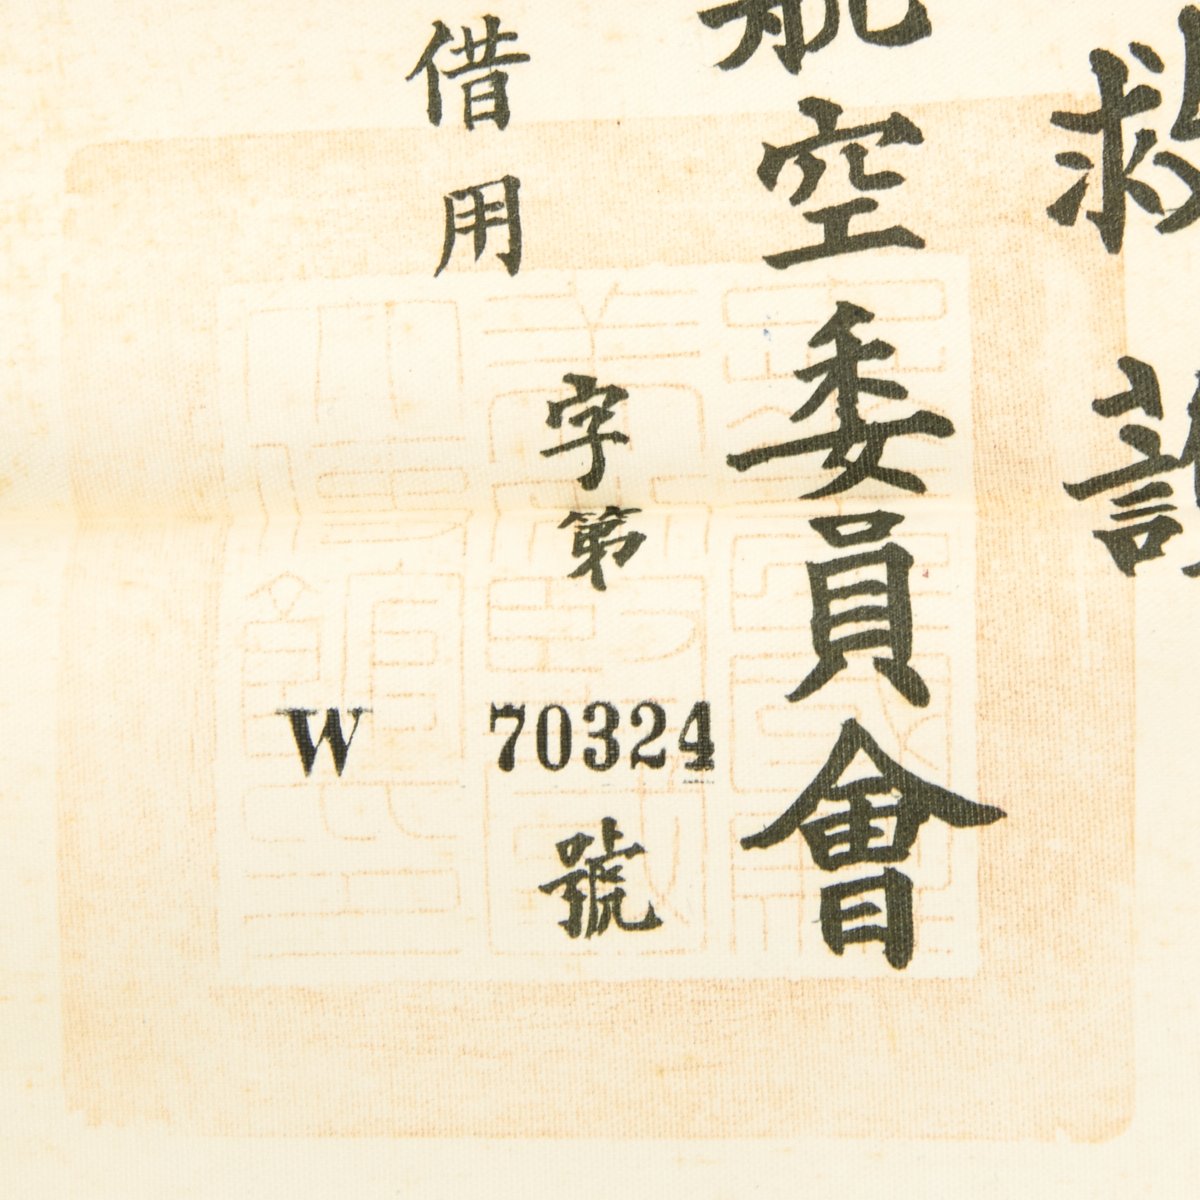 救護
航空委員會
字第
W 70324
號
借用